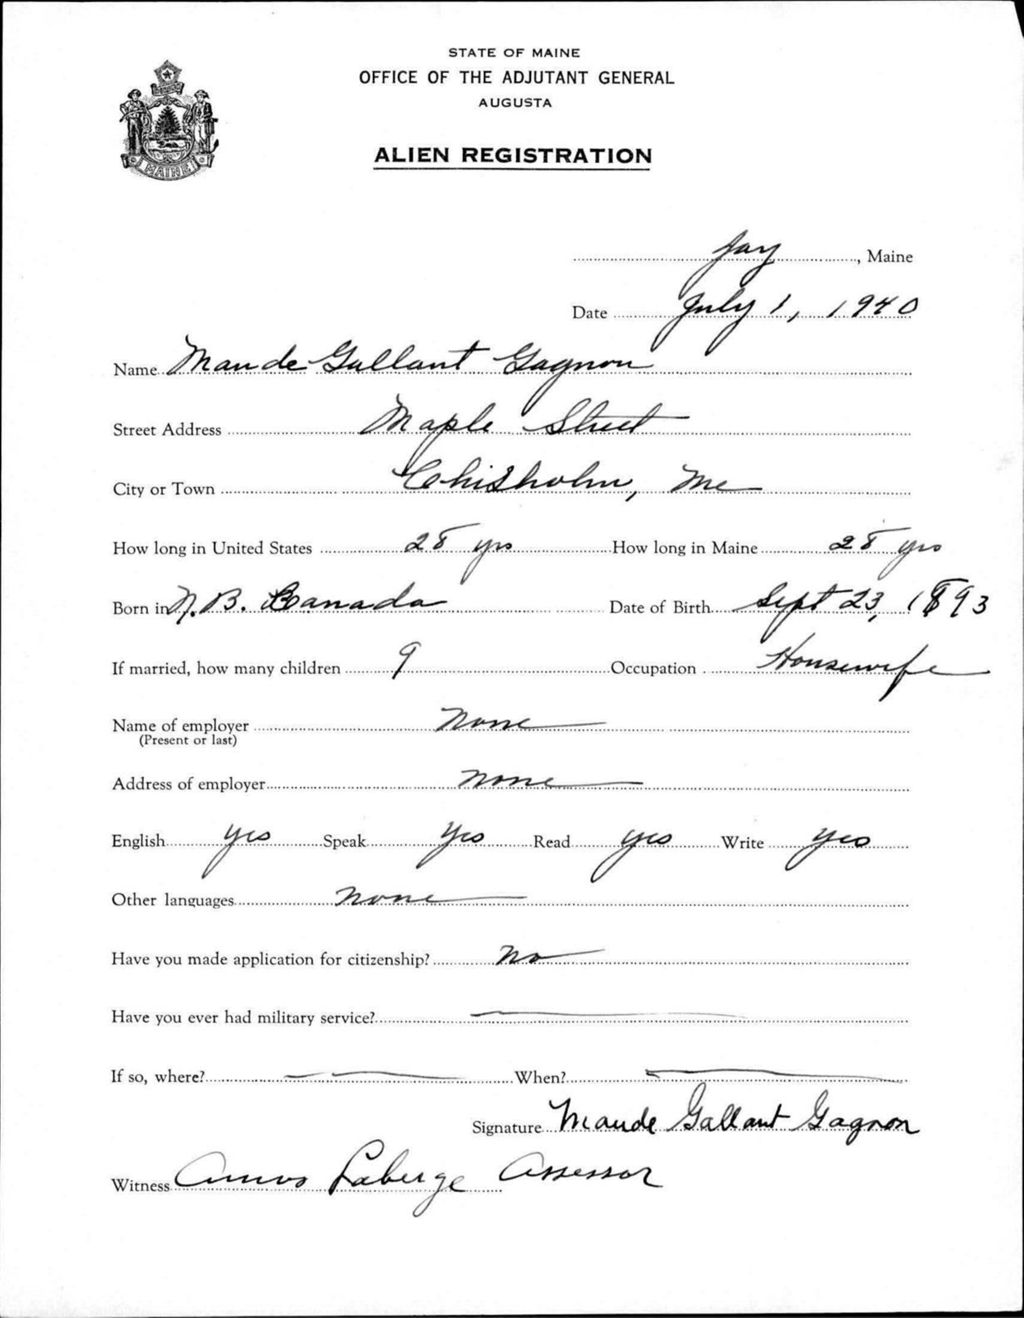 STATE OF MAINE
OFFICE OF THE ADJUTANT GENERAL
AUGUSTA
ALIEN REGISTRATION
MAINE
Jay, Maine
Date July 1, 1940
Name Maude Gallant Gagnon
Street Address Maple Street
City or Town Chisholm, Me
How long in United States 28 yrs How long in Maine 28 yrs
Born in N.B. Canada Date of Birth Sept 23, 1893
If married, how many children 9 Occupation Housewife
Name of employer none
(Present or last)
Address of employer none
English yes Speak yes Read yes Write yes
Other languages none
Have you made application for citizenship? No
Have you ever had military service?
If so, where? When?
Signature Maude Gallant Gagnon
Witness Amos Laberge Assessor